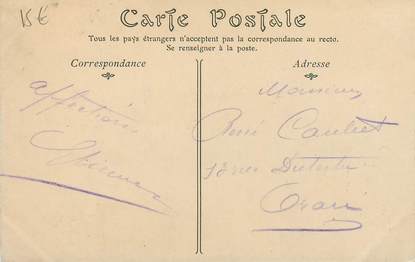 15€
Carte Postale
Tous les pays étrangers n'acceptent pas la correspondance au recto.
Se renseigner à la poste.
Correspondance
Adresse
affections
Monsieur
René
Oran